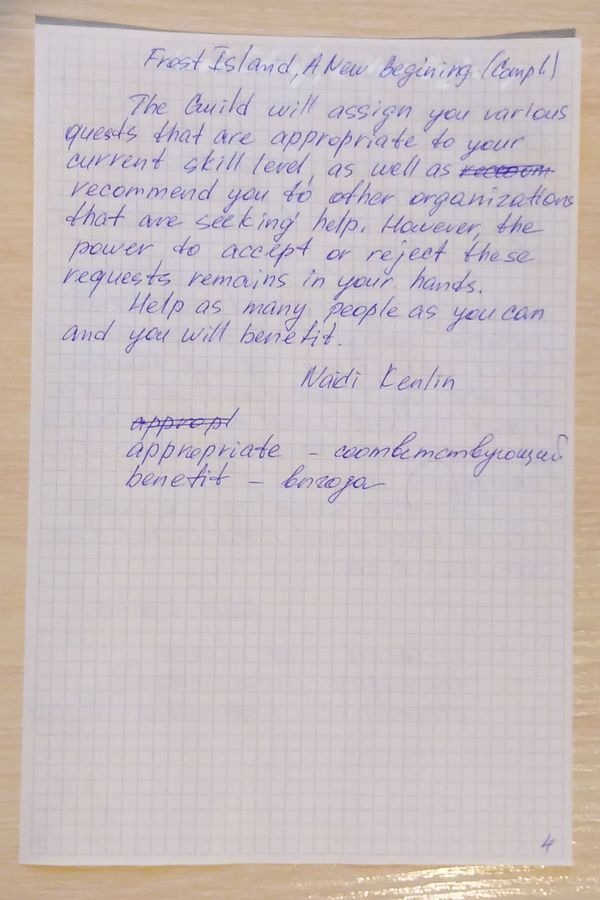 Frost Island, A New Begining (Compl)
The Guild will assign you various
quests that are appropriate to your
current skill level, as well as
recommend you to other organizations
that are seeking help. However, the
power to accept or reject these
requests remains in your hands.
Help as many people as you can
and you will benefit.
Naidi Kenlin
appropl
appropriate - соответствующий
benefit - выгода
4